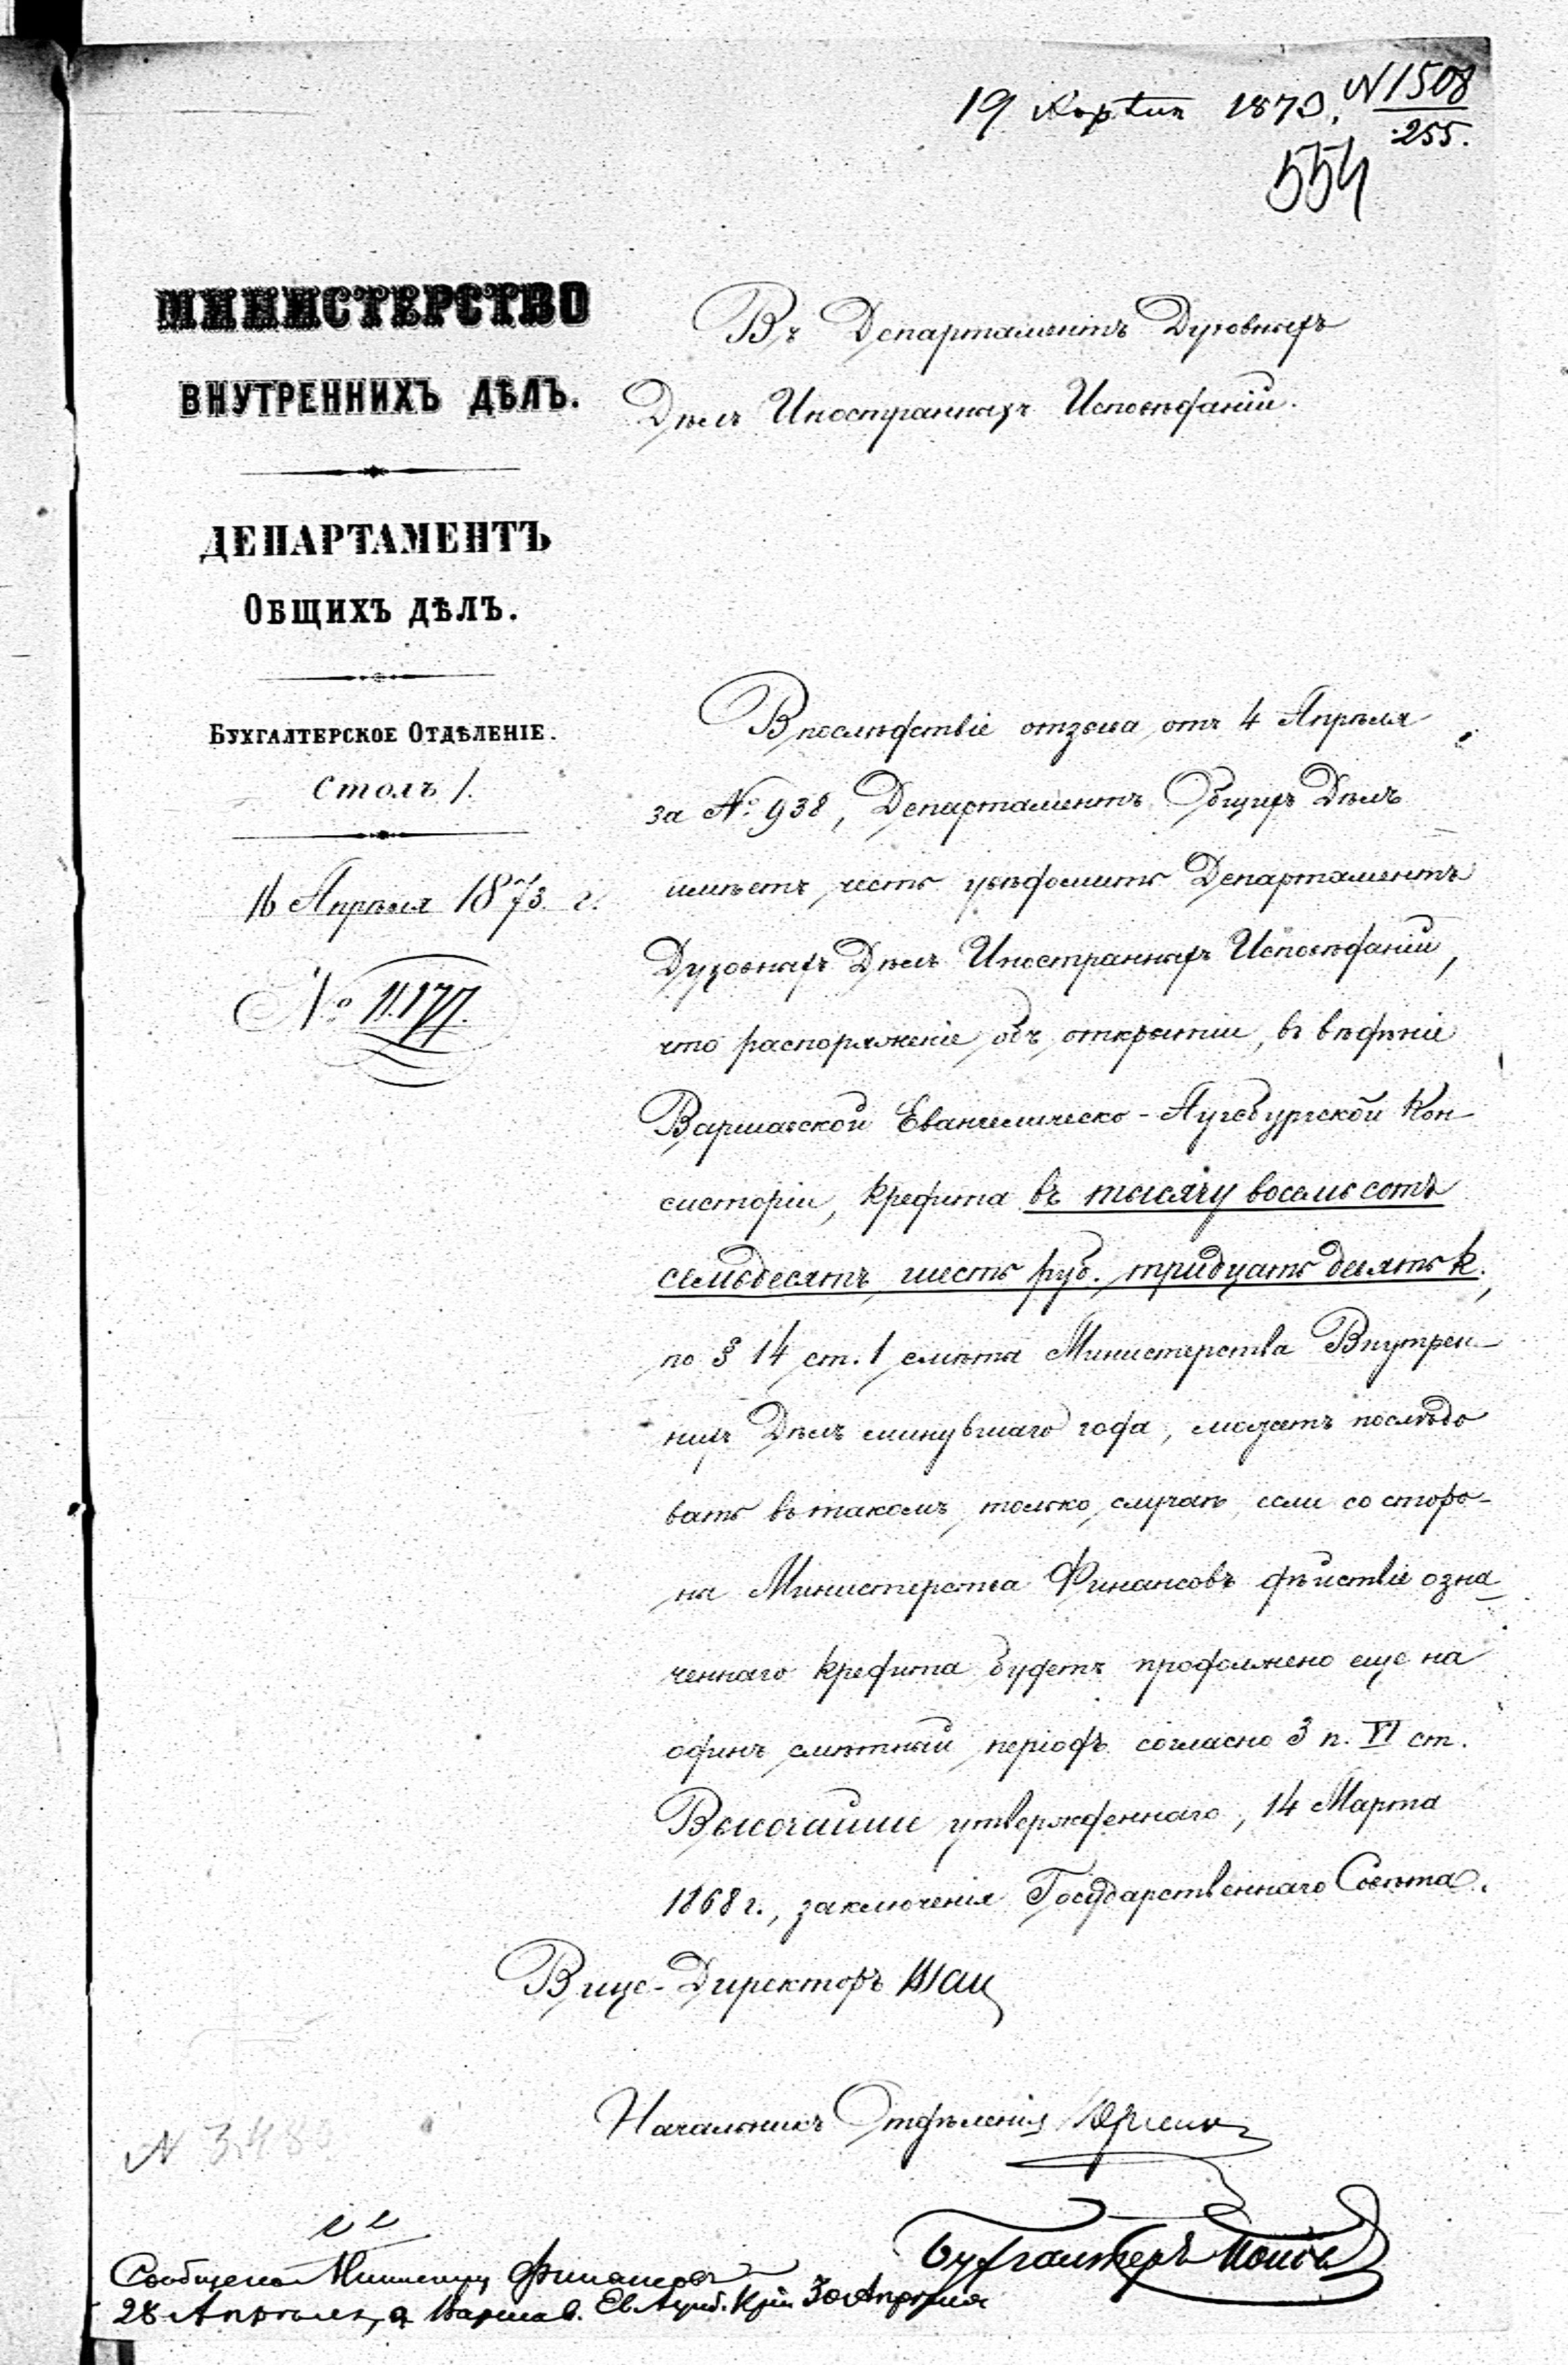 19 Апрѣля 1873. N 1508
255.
554
МИНИСТЕРСТВО
ВНУТРЕННИХЪ ДѢЛЪ.
ДЕПАРТАМЕНТЪ
ОБЩИХЪ ДѢЛЪ.
БУХГАЛТЕРСКОЕ ОТДѢЛЕНІЕ.
Столъ 1.
16 Апрѣля 1873 г.
№ 11.177.
Въ Департаментъ Духовныхъ
Дѣлъ Иностранныхъ Исповѣданій.
Впослѣдствіе отзыва отъ 4 Апрѣля
за № 938, Департаментъ Общихъ Дѣлъ
имѣетъ честь увѣдомить Департаментъ
Духовныхъ Дѣлъ Иностранныхъ Исповѣданій,
что распоряженіе объ открытіи, въ вѣдѣніе
Варшавской Евангелическо-Аугсбургской Кон-
систоріи, кредита въ тысячу восемьсотъ
семьдесятъ шесть руб. тридцать девять к.,
по § 14 ст. 1 смѣты Министерства Внутрен-
нихъ Дѣлъ минувшаго года, можетъ послѣдо
вать въ такомъ только случаѣ, если со сторо-
ны Министерства Финансовъ дѣйствіе озна-
ченнаго кредита будетъ продолжено еще на
одинъ смѣтный періодъ согласно 3 п. VI ст.
Высочайше утвержденнаго, 14 Марта
1868 г., заключенія Государственнаго Совѣта.
Вице-Директоръ
Начальникъ Отдѣленія
Бухгалтеръ Поповъ
N 348
Сообщено Министру Финансовъ
28 Апрѣля, а Варшав. Ев. Аугсб. К-ріи 30 Апрѣля